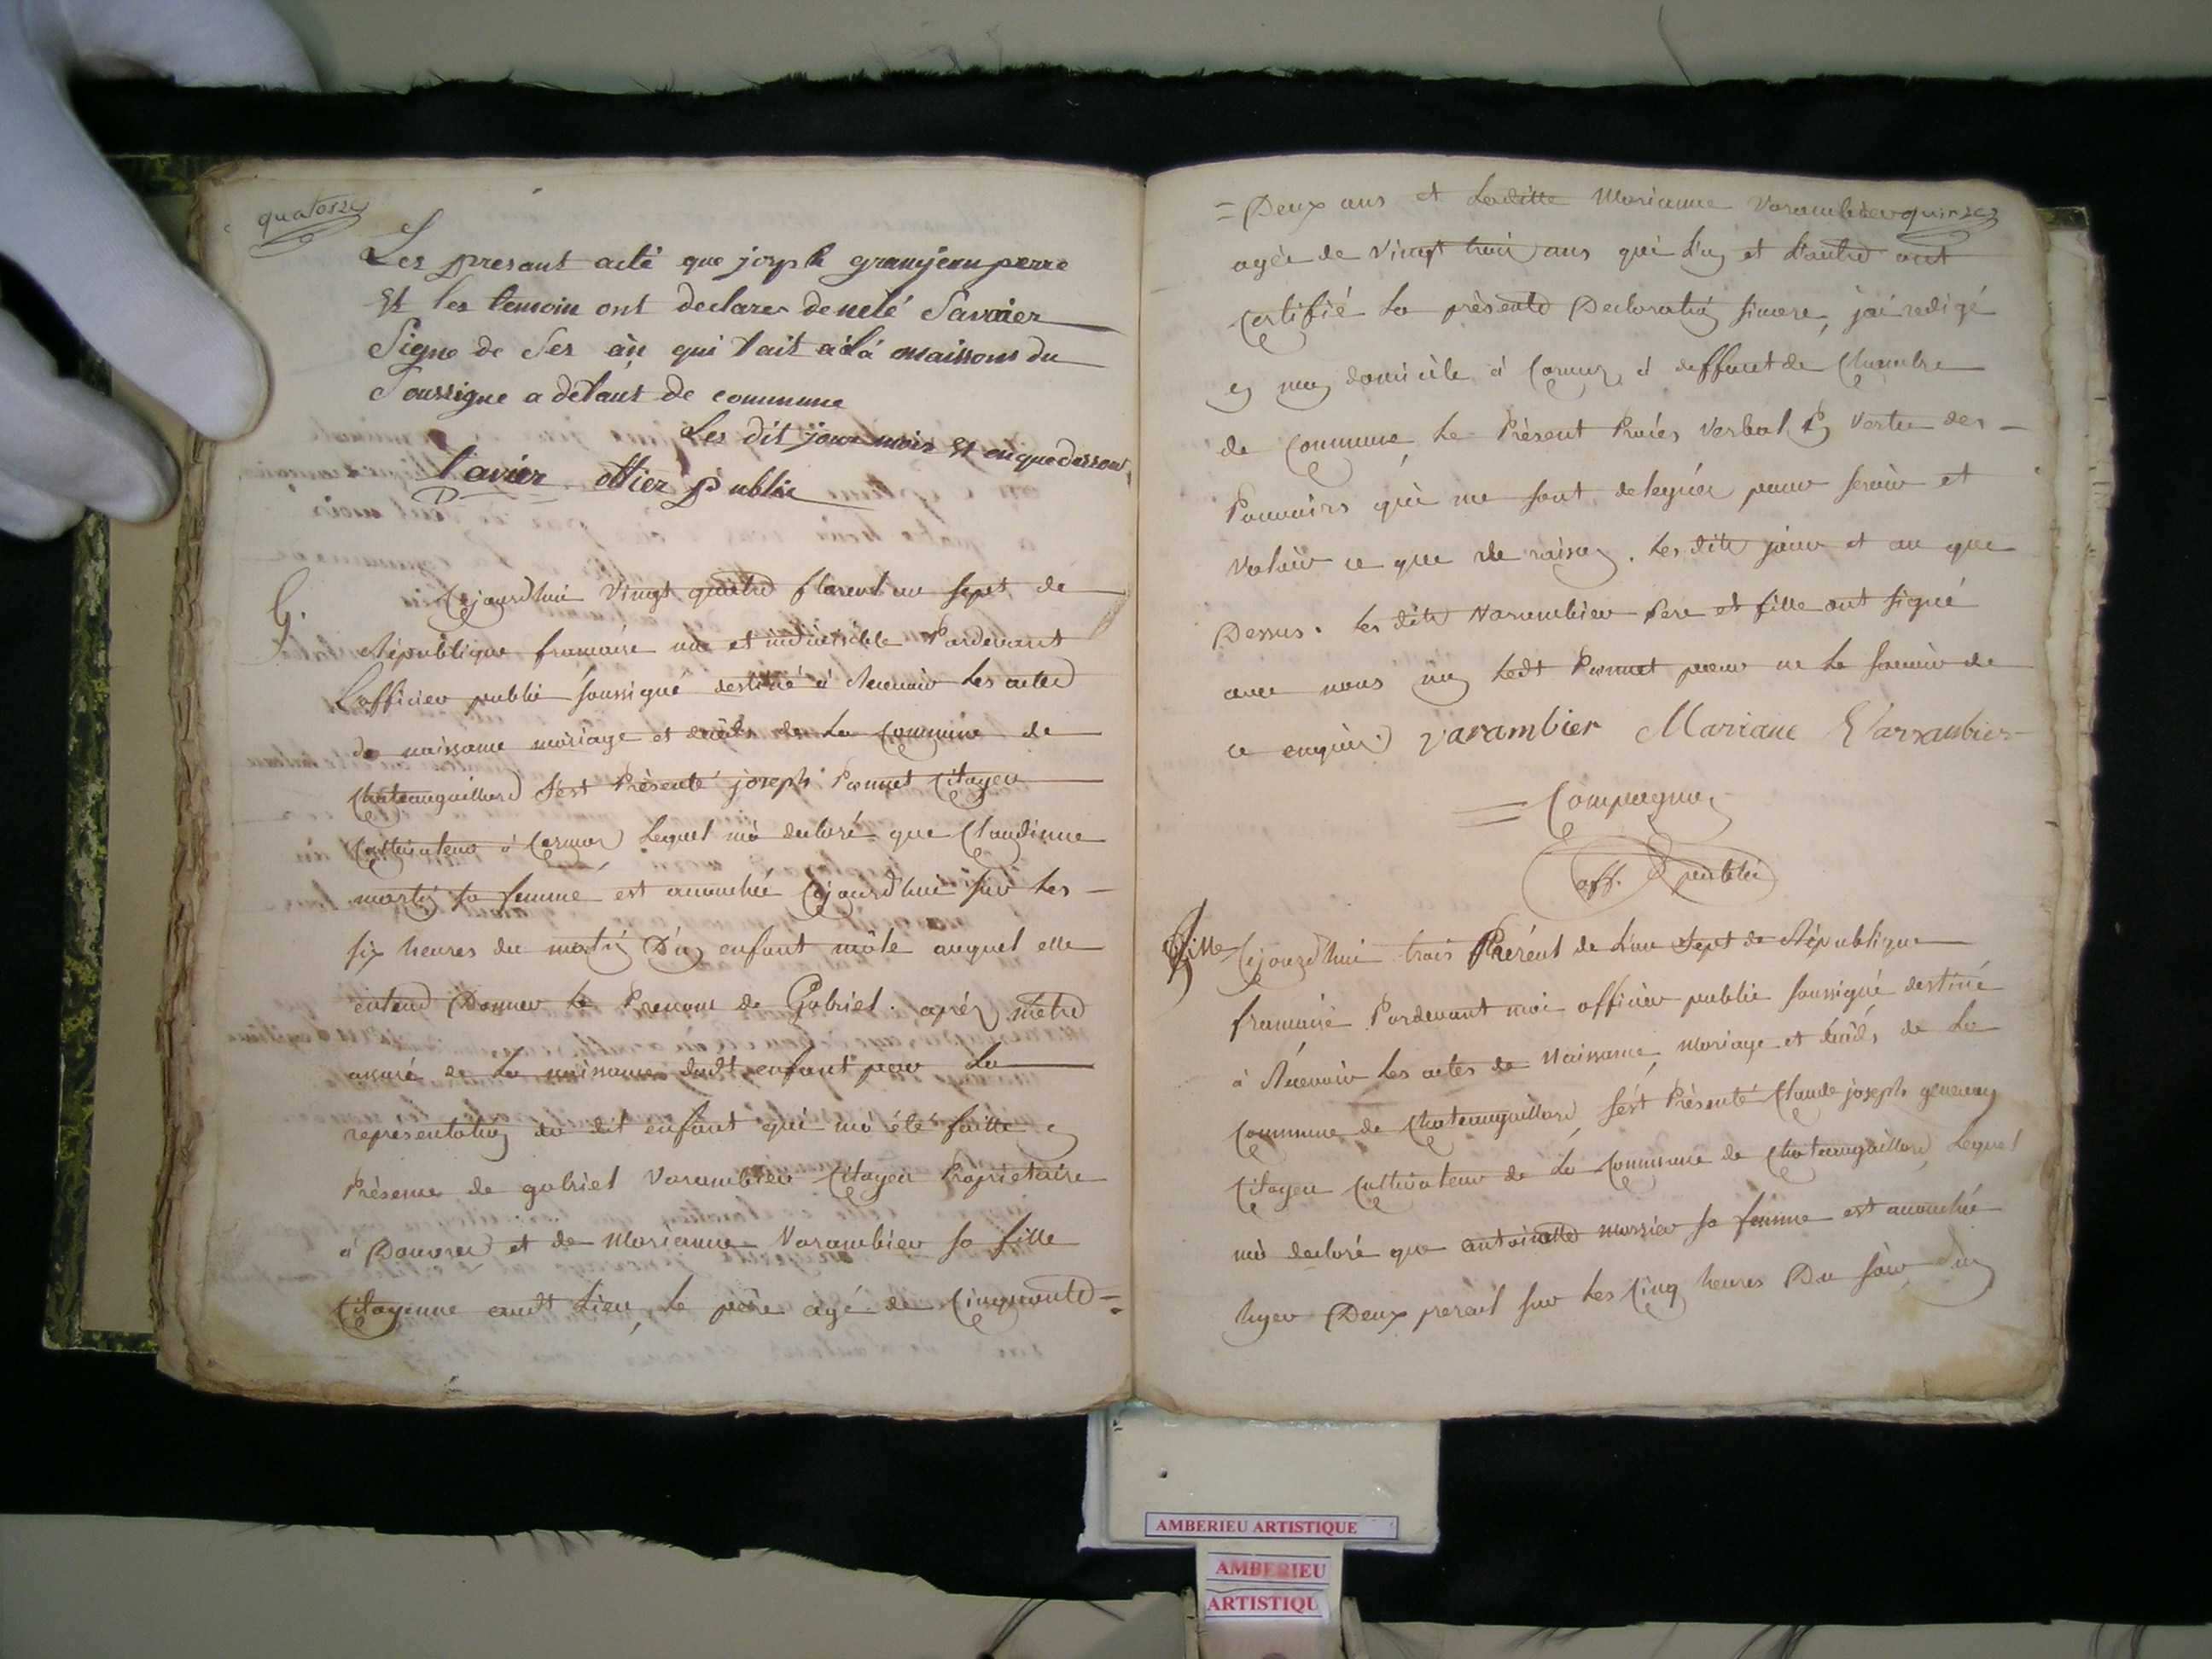 quatorze
Les presant acte que joseph granjean perre
Et les temoin ont declarer de nete Savoier
Signe de Ses àn qui tait a la maissons du
Soussigne a defaut de commune
Les dit jour mois Et en que dessou
tavier offier public
G.
Cejourdhui vingt quatre floreal an sept de
République francaise une et indivisible Pardevant
L'officier public soussigné destiné à Recevoir les actes
de naissance mariage et décès de La Commune de
Chateaugaillard S'est Présenté joseph Ponnet Citoyen
Cultivateur à Cormoz Lequel m'a declaré que Claudinne
martin sa femme est acouchée Cejourd'hui sur les
six heures du matin D'un enfant mâle auquel elle
entend Donner Le Prenom de Gabriel. après m'etre
assuré de La naissance dudt enfant par La
representation du dit enfant qui m'a été faitte en
Présence de gabriel Varambier Citoyen Propriétaire
à Douvres et de Marianne Varambier sa fille
Citoyenne audt Lieu, Le père agé de Cinquante =
quinzes
= Deux ans et Laditte Marianne Varambier
agée de vingt trois ans qui L'un et L'autre ont
certifié La présente Declaration sincere, j'ai redigé
en mon domicile à Cormoz, à deffaut de Chambre
de Commune, Le Présent Procés Verbal En Vertu des
Pouvoirs qui me sont delegués pour servir et
valoir ce que de raison. Les dits jour et an que
Dessus. Les dits Varambier Pere et fille ont signé
avec nous non Ledt Ponnet pour ne Le savoir de
ce enquis. varambier Mariane Varrambier
= Compagnon
off. public
fille
Cejourd'hui trois Préréal de L'an Sept de République
francaise Pardevant moi officier public soussigné destiné
à Recevoir Les actes de Naissance, Mariage et décès de La
Commune de Chateaugaillard, s'est Présenté Claude joseph genevay
Citoyen Cultivateur de La Commune de Chateaugaillard, Lequel
m'a declaré que antoinette mossier sa femme est acouchée
hyer Deux prereal sur Les Cinq heures Du soir d'un
AMBERIEU ARTISTIQUE
AMBERIEU
ARTISTIQU